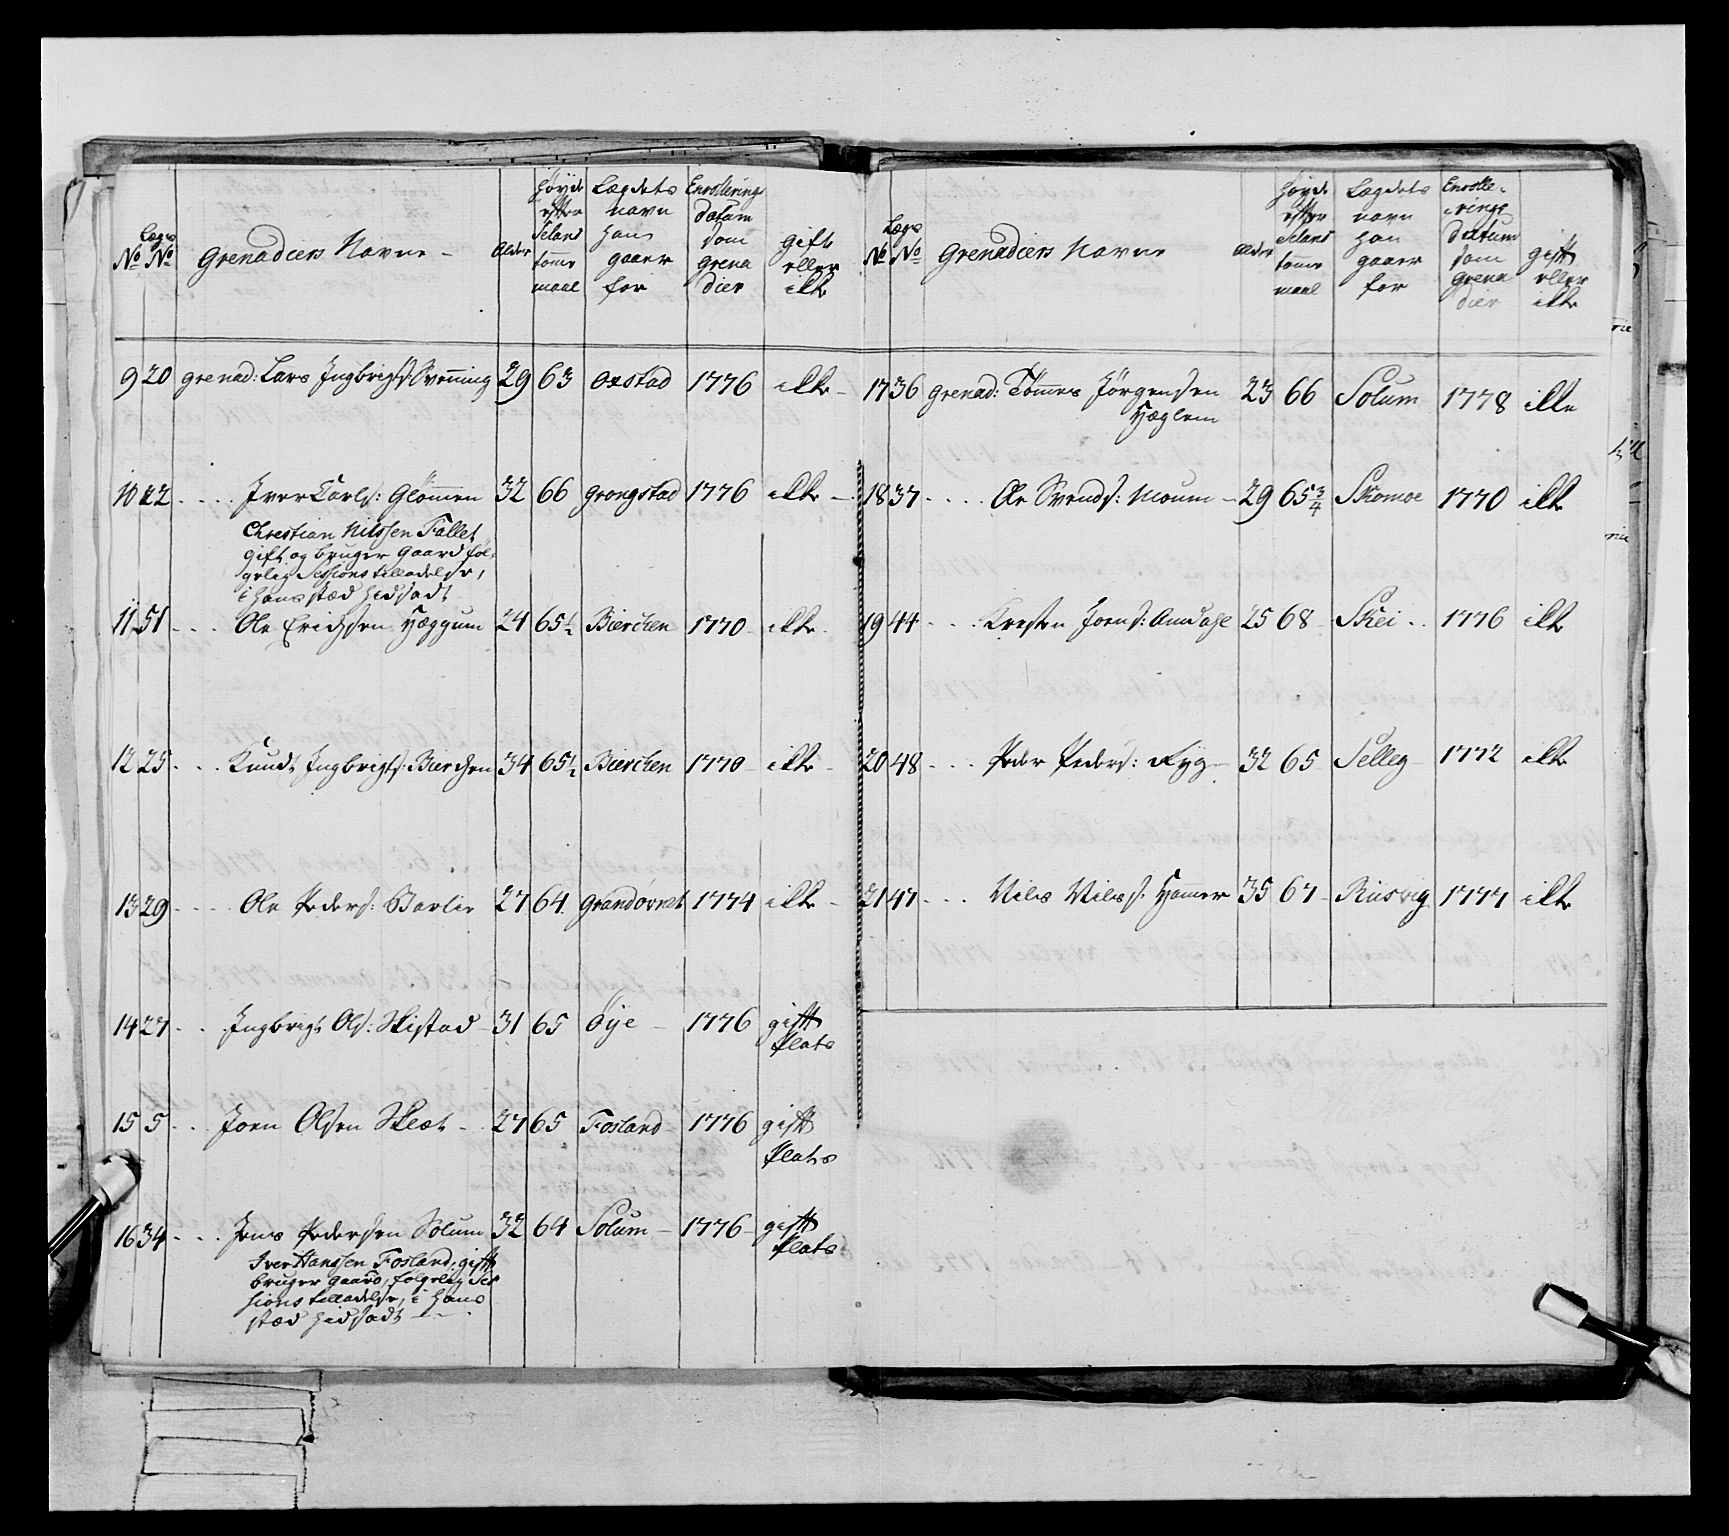 No Lægs No Grenadiers Navne – Alder Høyde efter Selans tomme maal Lægdets navn han gaaer for Enrollerings datum som Grenadier gift eller ikke
9 20 grenad: Lars Ingbrigts: Svenning 29 63 Oxstad 1776 ikke –
10 22 .... Iver Carls: Glømmen 32 66 Grongstad 1776 ikke –
Chrestian Nilssen Fallet
gift og bruger Gaard føl-
gelig Sessions tilladelse,
i hans stæd hidsadt
11 51 ... Ole Erichsen Hæggum 24 65½ Bierchen 1770 ikke
12 25 ... Knudt Ingbrigts: Bierchen 34 65½ Bierchen 1770 ikke –
13 29 .... Ole Peders: Barlie 27 64 Grandøvret 1774 ikke –
14 27 .. Ingbrigt Ols: Skistad 31 65 Øye – 1776 gift
Plats
15 5 ... Joen Olsen Sklæt – 27 65 Fosland 1776 gift
Plats
16 34 ... Jens Pedersen Solum 32 64 Solum – 1776 gift
Plats
Iver Hanssen Fosland, gift
bruger gaard, følgelig Ses
sions tilladelse, i hans
stæd hidsadt –
No Lægs No Grenadiers Navne Alder Høyde efter Selans tomme maal Lægdets navn han gaaer for Enrollerings datum som Grenadier gift eller ikke
17 36 grenad: Tommes Jørgensen 23 66 Solum 1778 ikke
Hæglem
18 37 .... Ole Svends: Moum – 29 65¾ Skomoe 1770 ikke
19 44 .... Kresten Joens: Amdahl 25 68 Skei .. 1776 ikke
20 48 ... Peder Peders: Ryg – 32 65 Selleg 1772 ikke
21 47 ... Nils Nilss: Hammer 35 67 Rusvig 1777 ikke